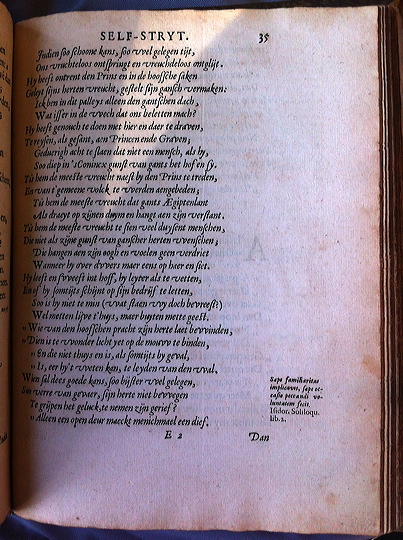 SELF-STRYT. 35
Indien soo schoone kans, soo wel gelegen tijt,
Ons vruchteloos ontspringt en vreuchdeloos ontglijt.
Hy heeft ontrent den Prins en in de hoofsche saken
Geleyt sijns herten vreucht, gestelt sijn gansch vermaken:
Ick ben in dit palleys alleen den gantschen dach,
Wat isser in de wech dat ons beletten mach?
Hy heeft genouch te doen met hier en daer te draven,
Te reysen, als gesant, aen Princen ende Graven;
Geduerigh acht te slaen dat niet een mensch, als by,
Soo diep in 'sConincx gunst van gants het hof en sy.
Tis hem de meeste vreucht naest by den Prins te treden,
En van 't gemeene volck te werden aengebeden;
Tis hem de meeste vreucht dat gants Ægiptenlant
Als draeyt op zijnen duym en hangt aen zijn verstant.
Tis hem de meeste vreucht te sien veel duysent menschen,
Die niet als zijne gunst van ganscher herten wenschen;
Die hangen aen zijn oogh en voelen geen verdriet
Wanneer hy over dwers maer eens op haer en siet.
Hy leeft en sweeft int hoff, hy leyter als te wetten,
En of hy somtijts schijnt op sijn bedrijf te letten,
Soo is hy niet te min (wat staen wy doch bevreest?)
Wel metten lijve t'huys, maer buyten mette geest.
„ Wie van den hoofschen pracht zijn herte laet bewinden,
„ Dien is te wonder licht yet op de mouw te binden,
„ En die niet thuys en is, als somtijts by geval,
„ Is, eer hy 't weten kan, te leyden van den wal.
Wien sal dees goede kans, soo bijster wel gelegen,
Soo verre van gevaer, sijn herte niet bewegen
Te grijpen het geluck, te nemen zijn gerief?
„ Alleen een open deur maeckt menichmael een dief.
Sæpe familiaritas
implicavit, sæpe oc-
casio peccandi vo-
luntatem fecit.
Isidor. Soliloqu.
lib. 2.
E 2 Dan